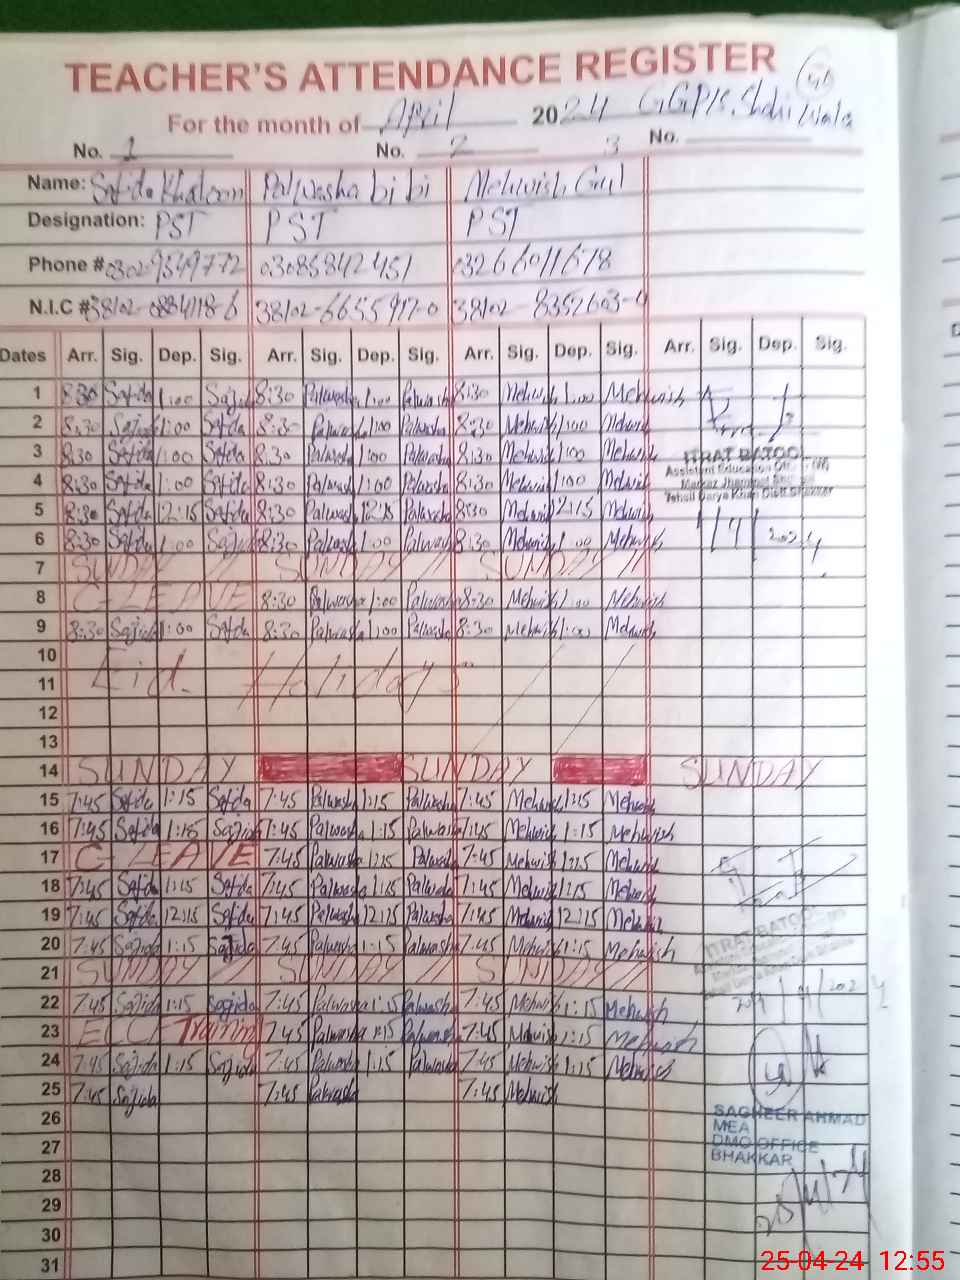 TEACHER'S ATTENDANCE REGISTER
For the month of April 2024 GGP/S. Shahi Wala
No. 1 No. 2 3 No.
Name: Sajida Khatoon Palwasha bi bi Mehwish Gul
Designation: PST PST PST
Phone # 0302-9549772 03085842451 03266011678
N.I.C # 38102-0884118-6 38102-6655917-0 38102-8352603-4
Dates Arr. Sig. Dep. Sig. Arr. Sig. Dep. Sig. Arr. Sig. Dep. Sig. Arr. Sig. Dep. Sig.
1 8:30 Sajida 1:00 Sajida 8:30 Palwasha 1:00 Palwasha 8:30 Mehwish 1:00 Mehwish
2 8:30 Sajida 1:00 Sajida 8:30 Palwasha 1:00 Palwasha 8:30 Mehwish 1:00 Mehwish
3 8:30 Sajida 1:00 Sajida 8:30 Palwasha 1:00 Palwasha 8:30 Mehwish 1:00 Mehwish
ITRAT BATOOL
4 8:30 Sajida 1:00 Sajida 8:30 Palwasha 1:00 Palwasha 8:30 Mehwish 1:00 Mehwish
Assistant Education Officer
Tehsil Darya Khan Distt Bhakkar
5 8:30 Sajida 12:15 Sajida 8:30 Palwasha 12:15 Palwasha 8:30 Mehwish 12:15 Mehwish
6 8:30 Sajida 1:00 Sajida 8:30 Palwasha 1:00 Palwasha 8:30 Mehwish 1:00 Mehwish
7 SUNDAY // SUNDAY // SUNDAY //
8 C-LEAVE 8:30 Palwasha 1:00 Palwasha 8:30 Mehwish 1:00 Mehwish
9 8:30 Sajida 1:00 Sajida 8:30 Palwasha 1:00 Palwasha 8:30 Mehwish 1:00 Mehwish
10
11 Eid. Holidays
12
13
14 SUNDAY SUNDAY SUNDAY
15 7:45 Sajida 1:15 Sajida 7:45 Palwasha 1:15 Palwasha 7:45 Mehwish 1:15 Mehwish
16 7:45 Sajida 1:15 Sajida 7:45 Palwasha 1:15 Palwasha 7:45 Mehwish 1:15 Mehwish
17 C-LEAVE 7:45 Palwasha 1:15 Palwasha 7:45 Mehwish 1:15 Mehwish
18 7:45 Sajida 1:15 Sajida 7:45 Palwasha 1:15 Palwasha 7:45 Mehwish 1:15 Mehwish
19 7:45 Sajida 12:15 Sajida 7:45 Palwasha 12:15 Palwasha 7:45 Mehwish 12:15 Mehwish
20 7:45 Sajida 1:15 Sajida 7:45 Palwasha 1:15 Palwasha 7:45 Mehwish 1:15 Mehwish
ITRAT BATOOL
21 SUNDAY // SUNDAY // SUNDAY //
22 7:45 Sajida 1:15 Sajida 7:45 Palwasha 1:15 Palwasha 7:45 Mehwish 1:15 Mehwish
23 ECCE Training 7:45 Palwasha 1:15 Palwasha 7:45 Mehwish 1:15 Mehwish
24 7:45 Sajida 1:15 Sajida 7:45 Palwasha 1:15 Palwasha 7:45 Mehwish 1:15 Mehwish
25 7:45 Sajida 7:45 Palwasha 7:45 Mehwish
26
SAGHEER AHMAD
MEA
27
DMO OFFICE
BHAKKAR
28
29
30
31
25-04-24 12:55